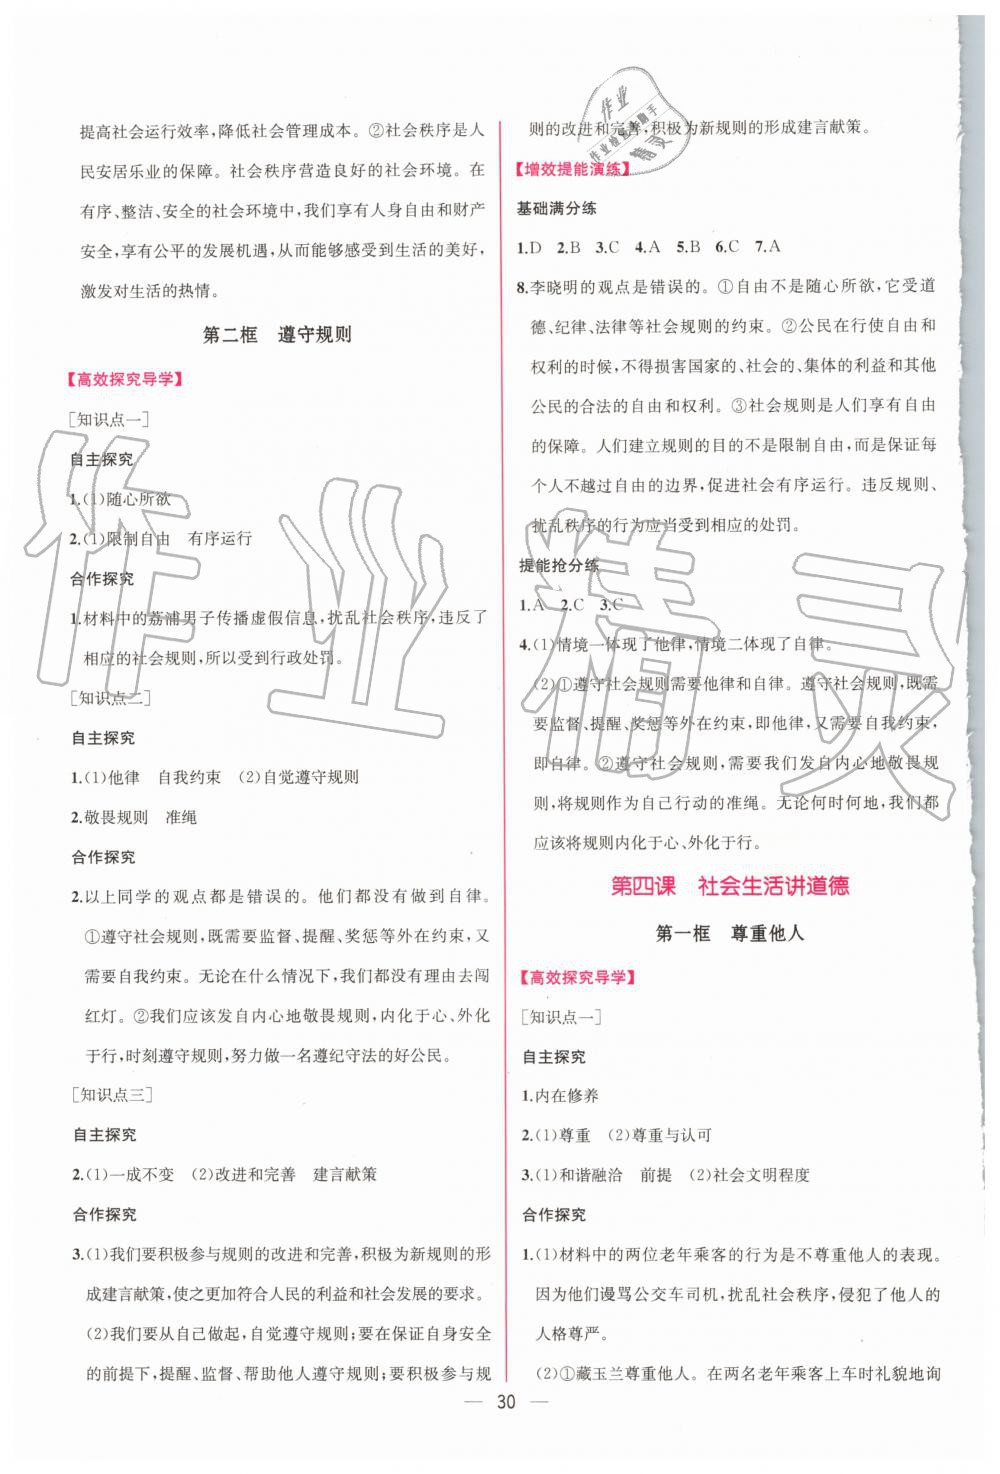 提高社会运行效率,降低社会管理成本。②社会秩序是人
民安居乐业的保障。社会秩序营造良好的社会环境。在
有序、整洁、安全的社会环境中,我们享有人身自由和财产
安全,享有公平的发展机遇,从而能够感受到生活的美好,
激发对生活的热情。
第二框 遵守规则
【高效探究导学】
[知识点一]
自主探究
1.(1)随心所欲
2.(1)限制自由 有序运行
合作探究
1.材料中的荔浦男子传播虚假信息,扰乱社会秩序,违反了
相应的社会规则,所以受到行政处罚。
[知识点二]
自主探究
1.(1)他律 自我约束 (2)自觉遵守规则
2.敬畏规则 准绳
合作探究
2.以上同学的观点都是错误的。他们都没有做到自律。
①遵守社会规则,既需要监督、提醒、奖惩等外在约束,又
需要自我约束。无论在什么情况下,我们都没有理由去闯
红灯。②我们应该发自内心地敬畏规则,内化于心、外化
于行,时刻遵守规则,努力做一名遵纪守法的好公民。
[知识点三]
自主探究
2.(1)一成不变 (2)改进和完善 建言献策
合作探究
3.(1)我们要积极参与规则的改进和完善,积极为新规则的形
成建言献策,使之更加符合人民的利益和社会发展的要求。
(2)我们要从自己做起,自觉遵守规则;要在保证自身安全
的前提下,提醒、监督、帮助他人遵守规则;要积极参与规
则的改进和完善,积极为新规则的形成建言献策。
【增效提能演练】
基础满分练
1.D 2.B 3.C 4.A 5.B 6.C 7.A
8.李晓明的观点是错误的。①自由不是随心所欲,它受道
德、纪律、法律等社会规则的约束。②公民在行使自由和
权利的时候,不得损害国家的、社会的、集体的利益和其他
公民的合法的自由和权利。③社会规则是人们享有自由
的保障。人们建立规则的目的不是限制自由,而是保证每
个人不越过自由的边界,促进社会有序运行。违反规则、
扰乱秩序的行为应当受到相应的处罚。
提能抢分练
1.A 2.C 3.C
4.(1)情境一体现了他律,情境二体现了自律。
(2)①遵守社会规则需要他律和自律。遵守社会规则,既需
要监督、提醒、奖惩等外在约束,即他律,又需要自我约束,
即自律。②遵守社会规则,需要我们发自内心地敬畏规
则,将规则作为自己行动的准绳。无论何时何地,我们都
应该将规则内化于心、外化于行。
第四课 社会生活讲道德
第一框 尊重他人
【高效探究导学】
[知识点一]
自主探究
1.内在修养
2.(1)尊重 (2)尊重与认可
3.(1)和谐融洽 前提 (2)社会文明程度
合作探究
1.(1)材料中的两位老年乘客的行为是不尊重他人的表现。
因为他们谩骂公交车司机,扰乱社会秩序,侵犯了他人的
人格尊严。
(2)①藏玉兰尊重他人。在两名老年乘客上车时礼貌地询
— 30 —
作业精灵
作业
作业检查小助手
精灵